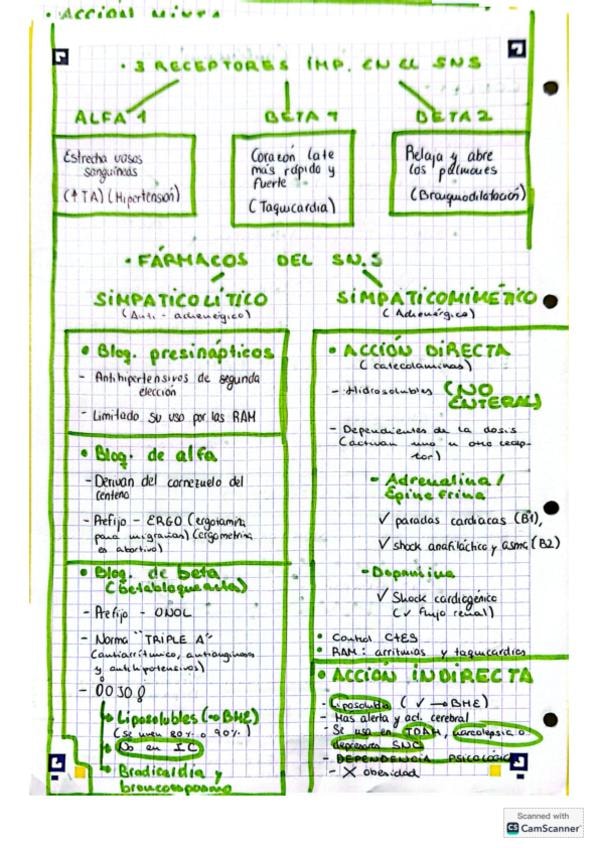 · ACCIÓN MIXTA
· 3 RECEPTORES IMP. EN EL SNS
ALFA 1
Estrecha vasos
sanguíneos
(↑ TA) (Hipertensión)
BETA 1
Corazón late
más rápido y
fuerte
(Taquicardia)
BETA 2
Relaja y abre
los pulmones
(Bronquodilatación)
· FÁRMACOS DEL SN.S
SIMPATICOLÍTICO
(Anti - adrenérgico)
• Bloq. presinápticos
- Antihipertensivos de segunda
elección
- Limitado su uso por las RAM
• Bloq. de alfa
- Derivan del cornezuelo del
centeno
- Prefijo - ERGO (ergotamina
para migrañas) (ergometrina
es abortivo)
• Bloq. de beta
(betabloqueante)
- Prefijo - ONOL
- Norma "TRIPLE A"
(antiarrítmico, antianginoso
y antihipotensivos)
Liposolubles (→ BHE)
(Se unen 80% o 90%)
No en IC
Bradicardia y
broncoespasmo
SIMPATICOMIMÉTICO
(Adrenérgico)
• ACCIÓN DIRECTA
(catecolaminas)
- Hidrosolubles (NO
ENTERAL)
- Dependientes de la dosis
(actúan uno u otro recep-
tor)
• Adrenalina /
Epinefrina
✓ paradas cardiacas (B1),
✓ shock anafiláctico y asma (B2)
- Dopamina
✓ Shock cardiogénico
(✓ flujo renal)
• Control CTES
• RAM: arritmias y taquicardias
• ACCIÓN INDIRECTA
- Liposoluble (✓ → BHE)
- Más alerta y act. cerebral
- Se usa en TDAH, narcolepsia o
depresores SNC
- DEPENDENCIA PSICOLÓGICA
- X obesidad
Scanned with
CS CamScanner